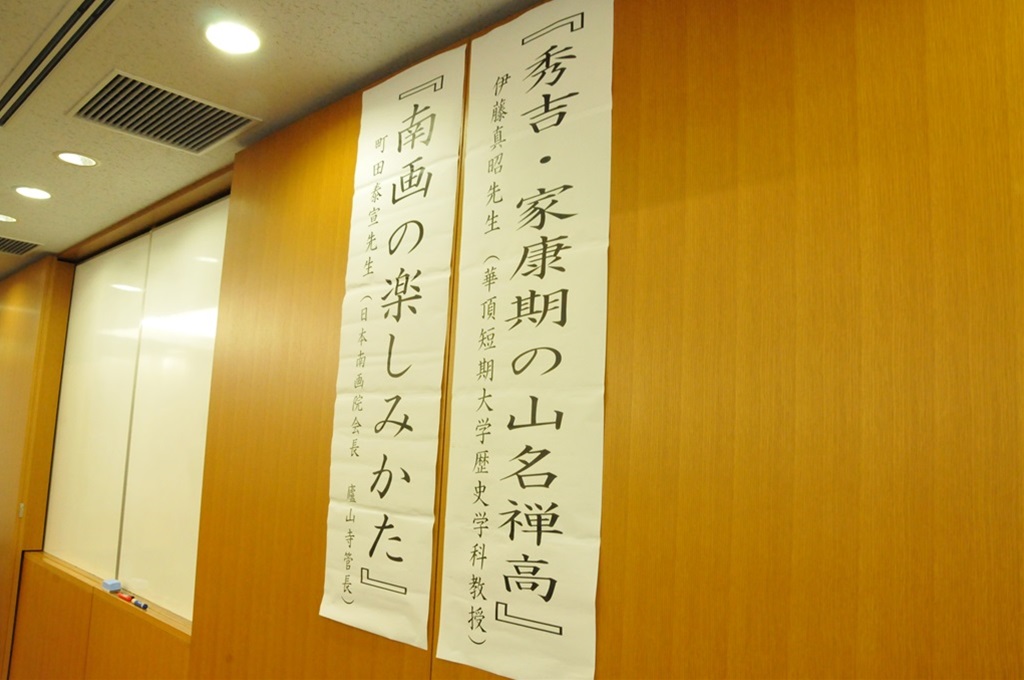 『秀吉・家康期の山名禅高』
伊藤真昭先生（華頂短期大学歴史学科教授）
『南画の楽しみかた』
町田泰宣先生（日本南画院会長　廬山寺管長）